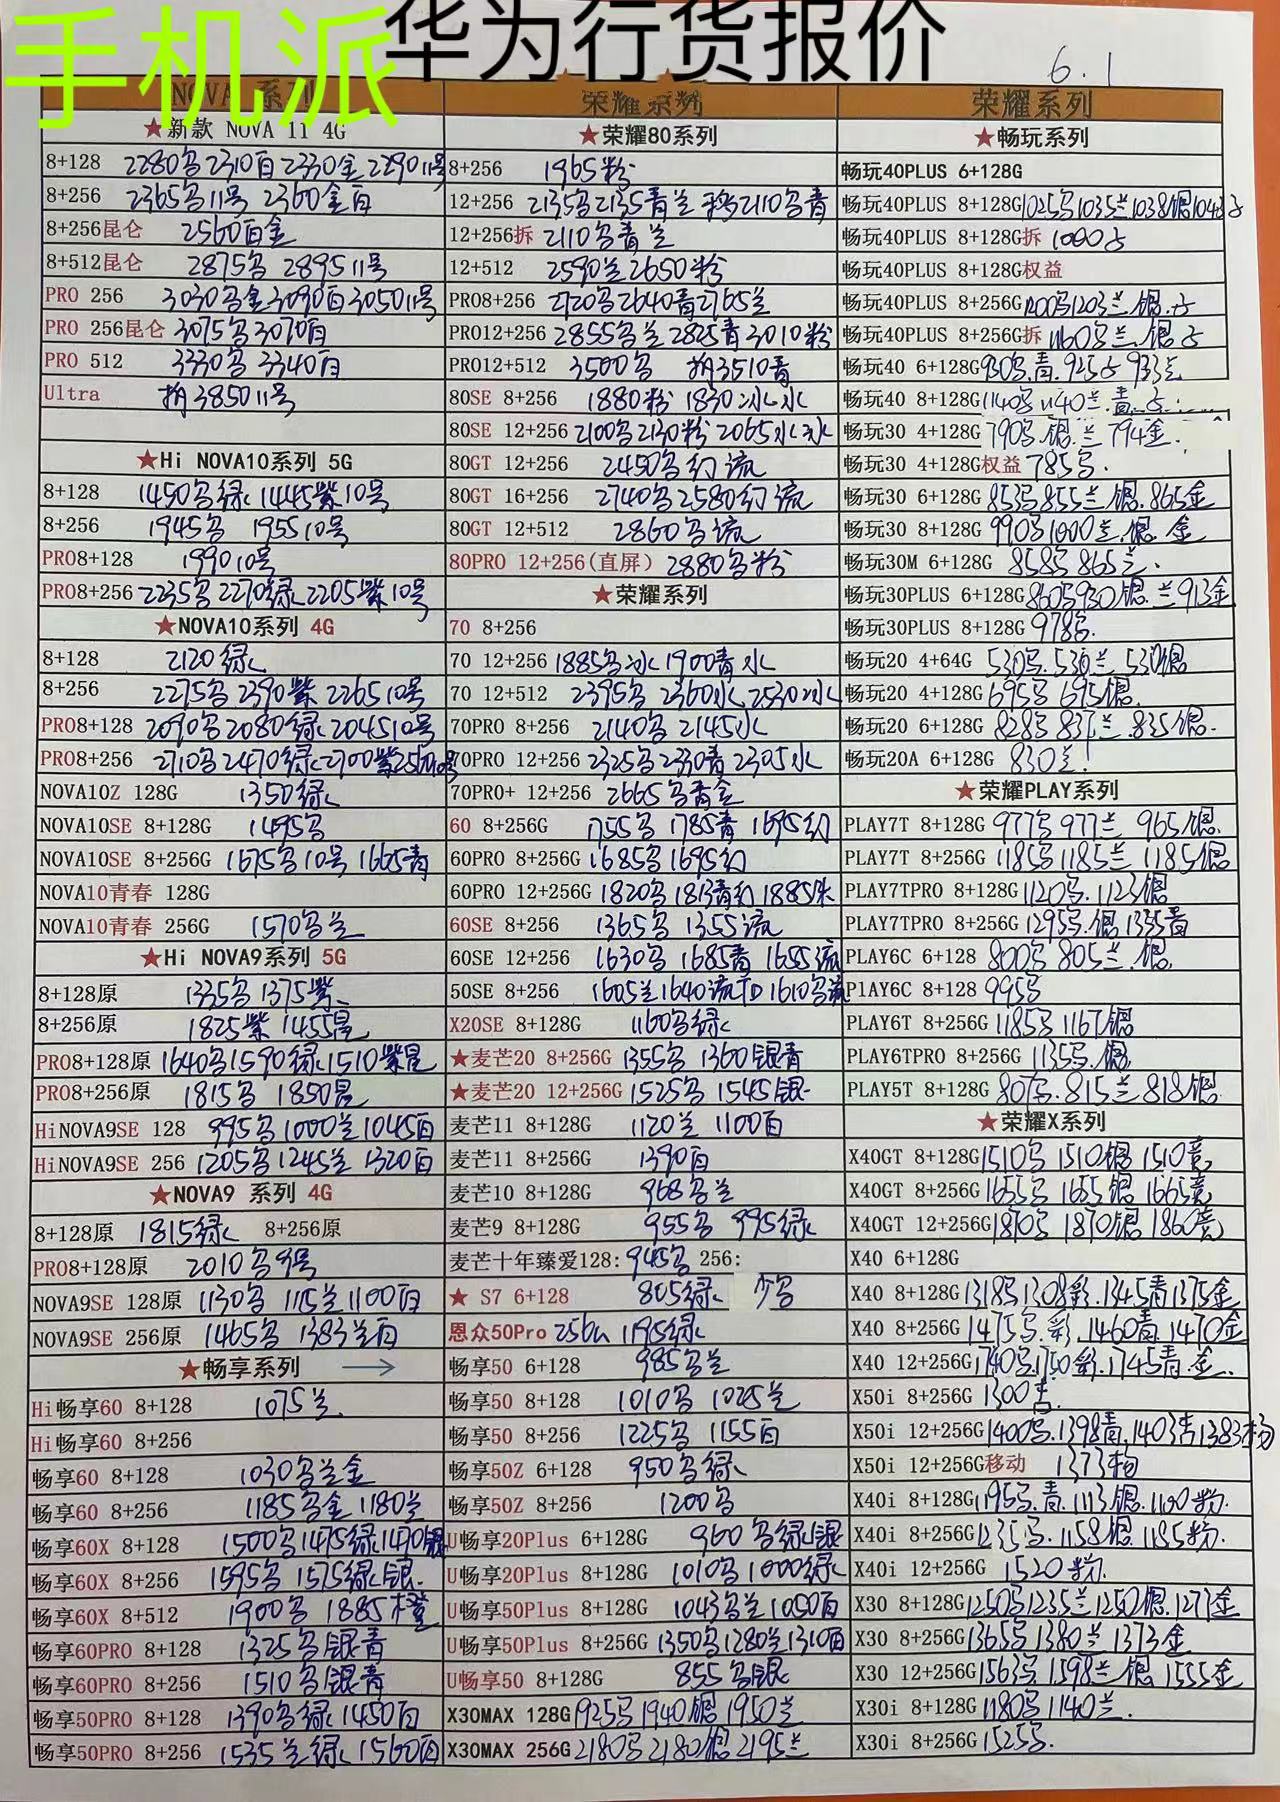 手机派
华为行货报价
6.1
NOVA 系列
★新款 NOVA 11 4G
8+128 2280黑2310白2330金2290 11号
8+256 2365黑11号 2360金白
8+256昆仑 2560白金
8+512昆仑 2875黑 2895 11号
PRO 256 3030黑金3090白3050 11号
PRO 256昆仑 3075黑3070白
PRO 512 3330黑 3340白
Ultra 3850 11号
★Hi NOVA10系列 5G
8+128 1450黑绿1445紫10号
8+256 1945黑 1955 10号
PRO8+128 1990 10号
PRO8+256 2235黑2270绿2205紫10号
★NOVA10系列 4G
8+128 2120绿
8+256 2275黑2390紫2265 10号
PRO8+128 2090黑2080绿2045 10号
PRO8+256 2710黑2470绿2700紫
NOVA10Z 128G 1350绿
NOVA10SE 8+128G 1495黑
NOVA10SE 8+256G 1675黑10号1665青
NOVA10青春 128G
NOVA10青春 256G 1570黑兰
★Hi NOVA9系列 5G
8+128原 1335黑1375紫
8+256原 1825紫 1455星
PRO8+128原 1640黑1590绿1510紫星
PRO8+256原 1815黑 1850星
HiNOVA9SE 128 995黑1000兰1045白
HiNOVA9SE 256 1205黑1245兰1320白
★NOVA9 系列 4G
8+128原 1815绿 8+256原
PRO8+128原 2010黑9号
NOVA9SE 128原 1130黑 1115兰1100白
NOVA9SE 256原 1465黑 1383兰白
★畅享系列 →
Hi畅享60 8+128 1075兰
Hi畅享60 8+256
畅享60 8+128 1030黑兰金
畅享60 8+256 1185黑金1180兰
畅享60X 8+128 1500黑1475绿1490银
畅享60X 8+256 1595黑 1575绿银
畅享60X 8+512 1900黑 1885橙
畅享60PRO 8+128 1325黑银青
畅享60PRO 8+256 1510黑银青
畅享50PRO 8+128 1390黑绿1450白
畅享50PRO 8+256 1535兰绿1560白
荣耀系列
★荣耀80系列
8+256 1965粉
12+256 2135黑2155青兰 2110黑青
12+256拆 2110黑青兰
12+512 2590兰2650粉
PRO8+256 2720黑2640青2765兰
PRO12+256 2855黑兰2825青3010粉
PRO12+512 3500黑 3510青
80SE 8+256 1880粉1830冰水
80SE 12+256 2100黑2130粉2065水冰
80GT 12+256 2450黑幻流
80GT 16+256 2740黑2580幻流
80GT 12+512 2860黑流
80PRO 12+256(直屏) 2880黑粉
★荣耀系列
70 8+256
70 12+256 1885黑冰1900青水
70 12+512 2395黑2360水2530冰
70PRO 8+256 2140黑2145水
70PRO 12+256 2325黑2330青2305水
70PRO+ 12+256 2665黑青金
60 8+256G 1755黑 1785青 1695幻
60PRO 8+256G 1685黑1695幻
60PRO 12+256G 1820黑1813青幻1885朱
60SE 8+256 1365黑 1355流
60SE 12+256 1630黑 1685青 1655流
50SE 8+256 1605兰1640流 1610黑流
X20SE 8+128G 1160黑绿
★麦芒20 8+256G 1355黑 1360银青
★麦芒20 12+256G 1525黑 1545银
麦芒11 8+128G 1120兰 1100白
麦芒11 8+256G 1390白
麦芒10 8+128G 968黑兰
麦芒9 8+128G 955黑 995绿
麦芒十年臻爱128: 945黑 256:
★ S7 6+128 805绿
恩众50Pro 256G 1195绿
畅享50 6+128 985黑兰
畅享50 8+128 1010黑 1025兰
畅享50 8+256 1225黑 1155白
畅享50Z 6+128 950黑绿
畅享50Z 8+256 1200黑
U畅享20Plus 6+128G 960黑绿银
U畅享20Plus 8+128G 1010黑1000绿
U畅享50Plus 8+128G 1043黑兰1050白
U畅享50Plus 8+256G 1350黑1280兰1310白
U畅享50 8+128G 855黑银
X30MAX 128G 1925黑1940银1950兰
X30MAX 256G 2180黑2180银2195兰
荣耀系列
★畅玩系列
畅玩40PLUS 6+128G
畅玩40PLUS 8+128G 1025黑1035兰1038银1043
畅玩40PLUS 8+128G拆 1000
畅玩40PLUS 8+128G权益
畅玩40PLUS 8+256G 1200黑1203兰.银
畅玩40PLUS 8+256G拆 1160黑兰.银
畅玩40 6+128G 930黑.青.925 933兰
畅玩40 8+128G 1140黑1140兰.青
畅玩30 4+128G 790黑.银.兰 794金.
畅玩30 4+128G权益 785黑.
畅玩30 6+128G 853黑855兰.银.865金
畅玩30 8+128G 990黑1000兰.银.金
畅玩30M 6+128G 858黑865兰.
畅玩30PLUS 6+128G 860黑930银.兰913金
畅玩30PLUS 8+128G 978黑.
畅玩20 4+64G 530黑.536兰.530银
畅玩20 4+128G 695黑695银.
畅玩20 6+128G 828黑837兰.835银.
畅玩20A 6+128G 830兰
★荣耀PLAY系列
PLAY7T 8+128G 977黑977兰 965银.
PLAY7T 8+256G 1185黑1185兰 1185银
PLAY7TPRO 8+128G 1120黑.1123银
PLAY7TPRO 8+256G 1295黑.银1335青
PLAY6C 6+128 800黑 805兰.银.
PlAY6C 8+128 995黑
PLAY6T 8+256G 1185黑1167银
PLAY6TPRO 8+256G 1135黑.银
PLAY5T 8+128G 807黑.815兰818银.
★荣耀X系列
X40GT 8+128G 1510黑1510银1510竞
X40GT 8+256G 1655黑 1655银1665竞
X40GT 12+256G 1870黑1870银1860竞
X40 6+128G
X40 8+128G 1318黑1308彩.1345青1375金
X40 8+256G 1475黑.彩.1460青.1470金
X40 12+256G 1740黑.1750彩.1745青.金.
X50i 8+256G 1300青.
X50i 12+256G 1400黑.1398青.1403 1383粉
X50i 12+256G移动 1373粉
X40i 8+128G 1195黑.青.1113银.1100粉.
X40i 8+256G 1235黑.1158银.1185粉.
X40i 12+256G 1520粉.
X30 8+128G 1250黑1235兰1250银.1271金
X30 8+256G 1365黑1380兰1373金
X30 12+256G 1563黑.1598兰.银1555金
X30i 8+128G 1180黑1140兰.
X30i 8+256G 1525黑.